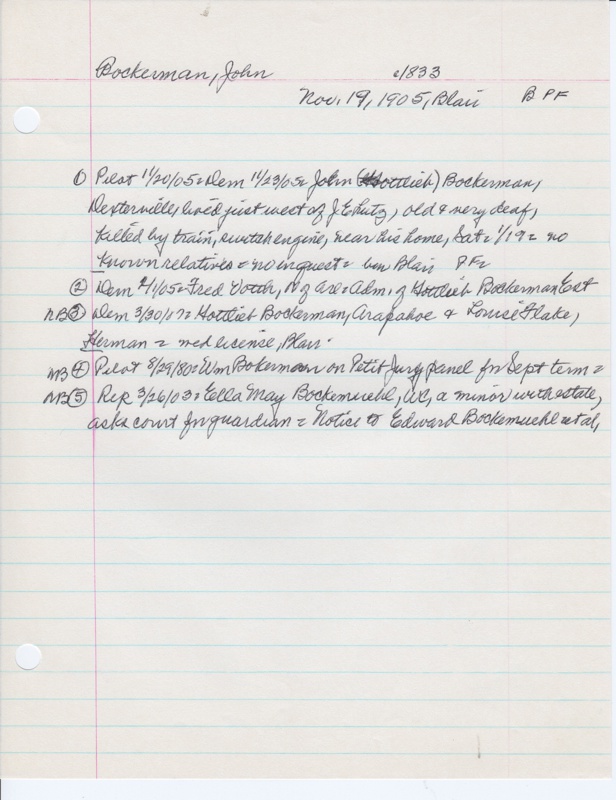 Bockerman, John c1833
Nov. 19, 1905, Blair B PF
① Pilot 11/20/05 = Dem 11/23/05 = John (Gottlieb) Bockerman,
Dexterville, lived just west of J E Lutz, old & very deaf,
killed by train, switch engine, near his home, Sat = 1/19 = no
known relatives = no inquest = Blair PF =
② Dem 4/1/05 = Fred = Adm. of Gottlieb Bockerman Est
NB③ Dem 3/30/17 = Gottlieb Bockerman, Arapahoe & Louise Flake,
Herman = wed license, Blair.
NB④ Pilot 8/29/80 = Wm Bokerman on Petit Jury panel for Sept term =
NB⑤ Rep 3/26/03 = Ella May Bockemuehl, a minor with estate,
asks court for guardian = Notice to Edward Bockemuehl et al,